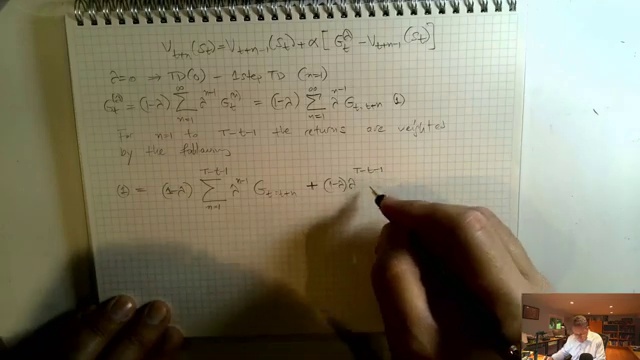 V_{t+n}(S_t) = V_{t+n-1}(S_t) + α [ G_t^λ - V_{t+n-1}(S_t) ]
λ=0 ⇒ TD(0) - 1 step TD (n=1)
G_t^{(λ)} = (1-λ) ∑_{n=1}^{∞} λ^{n-1} G_t^{(n)} = (1-λ) ∑_{n=1}^{∞} λ^{n-1} G_{t:t+n} (1)
For n=1 to T-t-1 the returns are weighted
by the following
(1) = (1-λ) ∑_{n=1}^{T-t-1} λ^{n-1} G_{t:t+n} + (1-λ)λ^{T-t-1}